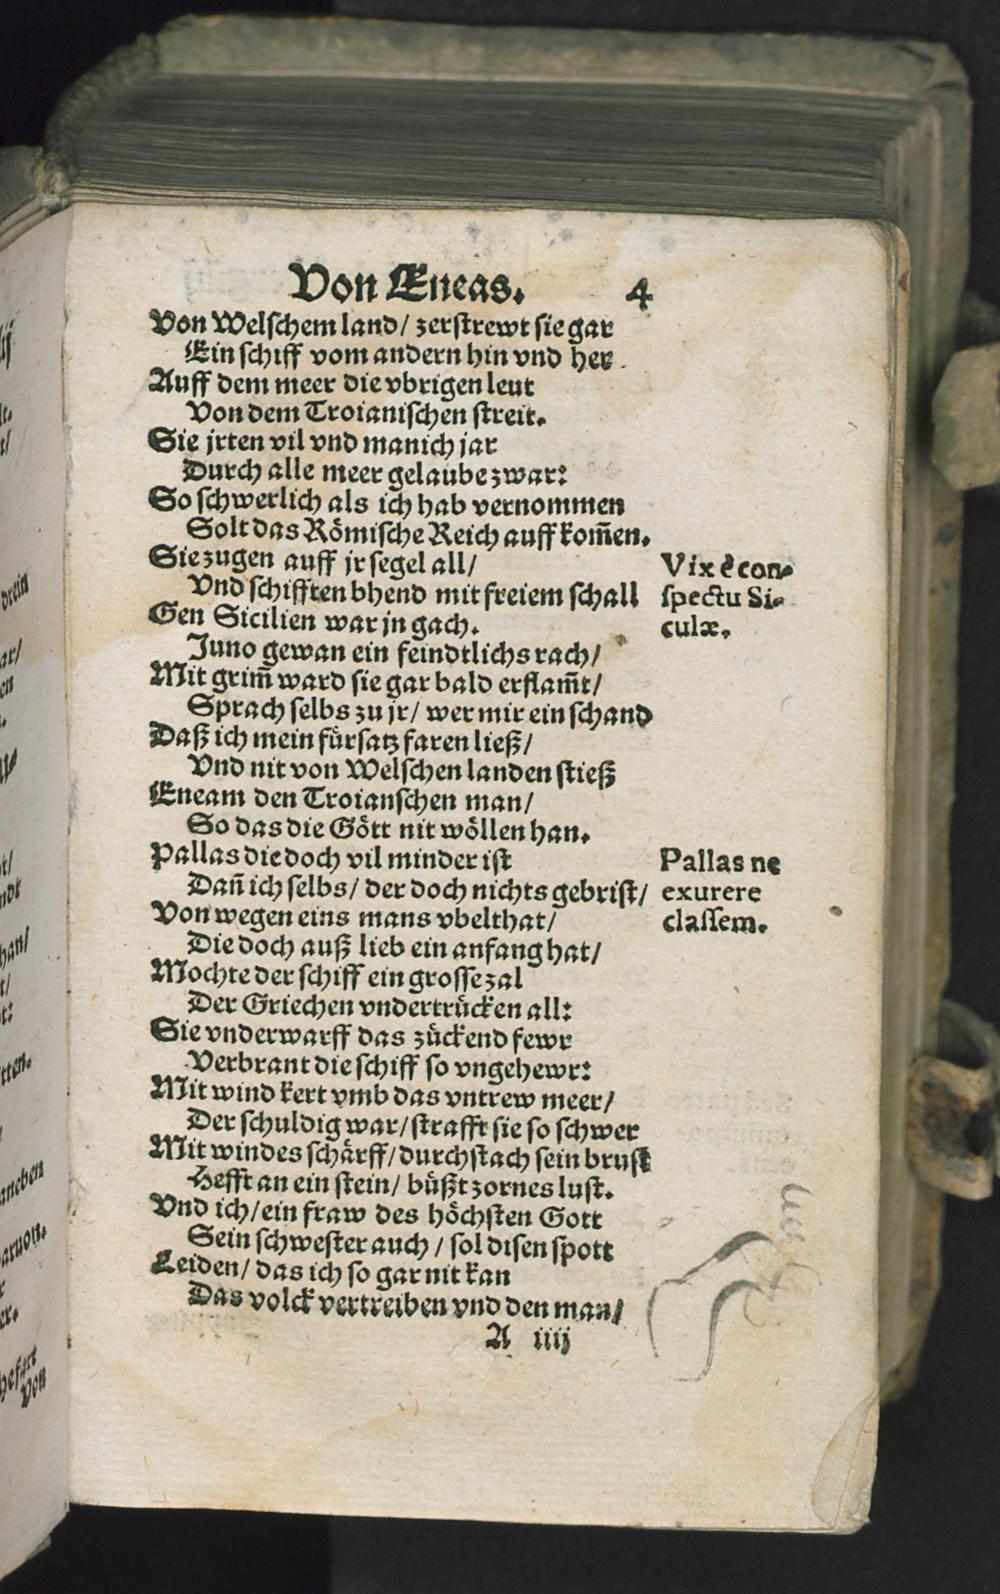 Von Eneas. 4
Von Welschem land/ zerstrewt sie gar
Ein schiff vom andern hin vnd her
Auff dem meer die vbrigen leut
Von dem Troianischen streit.
Sie jrten vil vnd manich jar
Durch alle meer gelaube zwar:
So schwerlich als ich hab vernommen
Solt das Römische Reich auff kom̄en.
Sie zugen auff jr segel all/
Vnd schifften bhend mit freiem schall
Gen Sicilien war jn gach.
Juno gewan ein feindtlichs rach/
Mit grim̄ ward sie gar bald erflam̄t/
Sprach selbs zu jr/ wer mir ein schand
Daß ich mein fürsatz faren ließ/
Vnd nit von Welschen landen stieß
Eneam den Troianschen man/
So das die Gött nit wöllen han.
Pallas die doch vil minder ist
Dan̄ ich selbs/ der doch nichts gebrist/
Von wegen eins mans vbelthat/
Die doch auß lieb ein anfang hat/
Mochte der schiff ein grosse zal
Der Griechen vndertrücken all:
Sie vnderwarff das zückend fewr
Verbrant die schiff so vngehewr:
Mit wind kert vmb das vntrew meer/
Der schuldig war/ strafft sie so schwer
Mit windes schärff/ durchstach sein brust
Hefft an ein stein/ büßt zornes lust.
Vnd ich/ ein fraw des höchsten Gott
Sein schwester auch/ sol disen spott
Leiden/ das ich so gar nit kan
Das volck vertreiben vnd den man/
A iiij
Vix è con-
spectu Si-
culæ.
Pallas ne
exurere
classem.